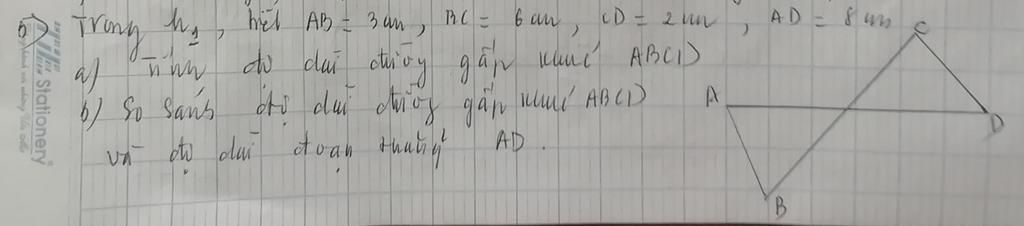 5) Trong h1, biết AB = 3 cm, BC = 6 cm, CD = 2 cm, AD = 8 cm
a) Tính độ dài đường gấp khúc ABCD
b) So sánh độ dài đường gấp khúc ABCD
và độ dài đoạn thẳng AD.
A
B
C
D
Stationery